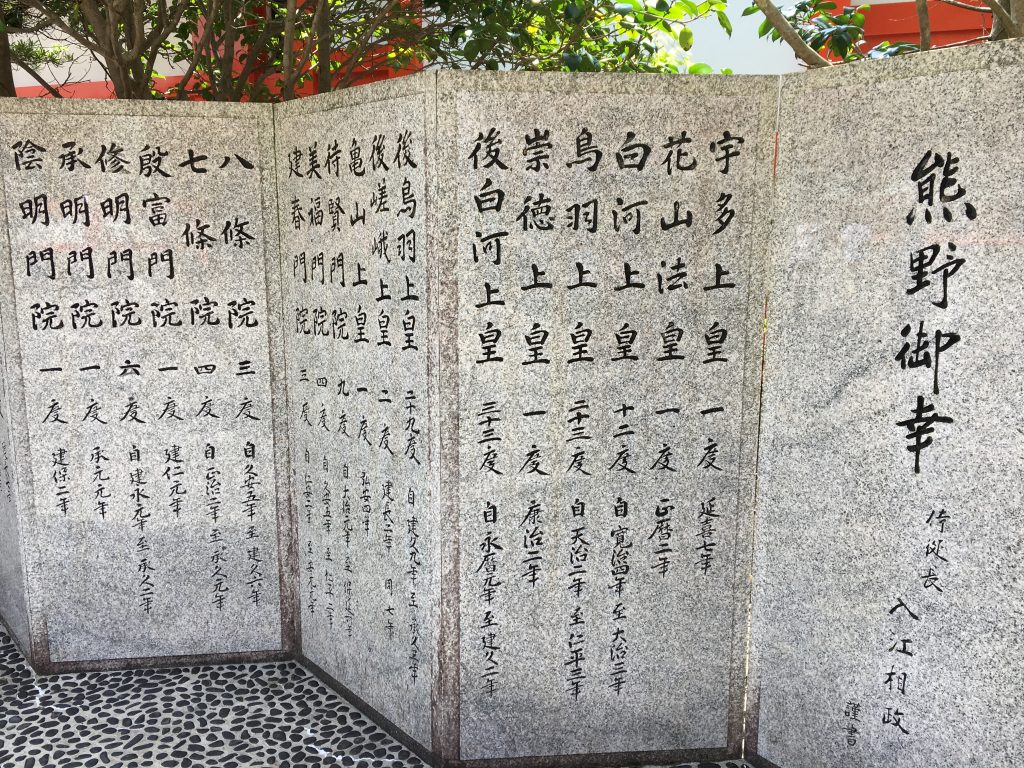 熊野御幸
侍従長 入江相政 謹書
宇多上皇 一度 延喜七年
花山法皇 一度 正暦二年
白河上皇 十二度 自寛治四年 至大治三年
鳥羽上皇 二十三度 自天治二年 至仁平三年
崇徳上皇 一度 康治二年
後白河上皇 三十三度 自永暦元年 至建久二年
後鳥羽上皇 二十九度 自建久九年 至承久三年
後嵯峨上皇 二度 建長二年 同七年
亀山上皇 一度 弘安四年
待賢門院 九度 自大治元年 至
美福門院 四度 自久安五年 至仁平二年
建春門院 三度 自仁安二年 至安元元年
八條院 三度 自久安五年 至建久六年
七條院 四度 自正治二年 至承久元年
殷富門院 一度 建仁元年
修明門院 六度 自建永元年 至承久二年
承明門院 一度 承元元年
陰明門院 一度 建保二年